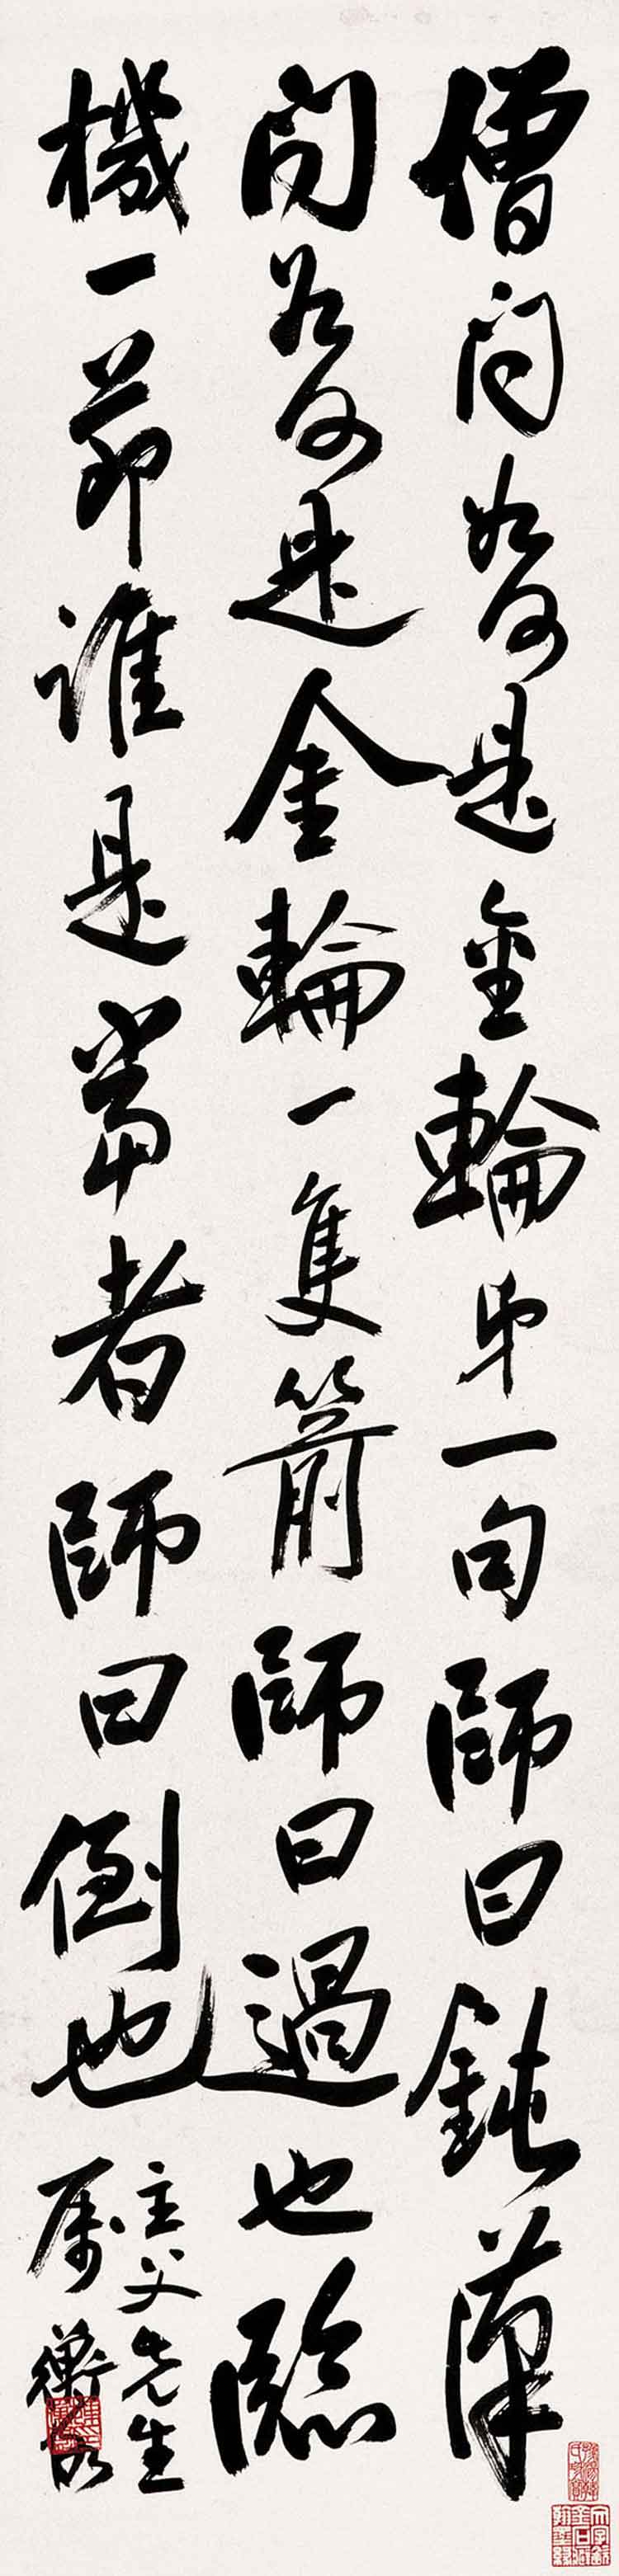 僧問如何是金輪第一句師曰鈍漢
問如何是金輪一隻箭師曰過也臨
機一箭誰是當者師曰倒也
主父先生
属 衡